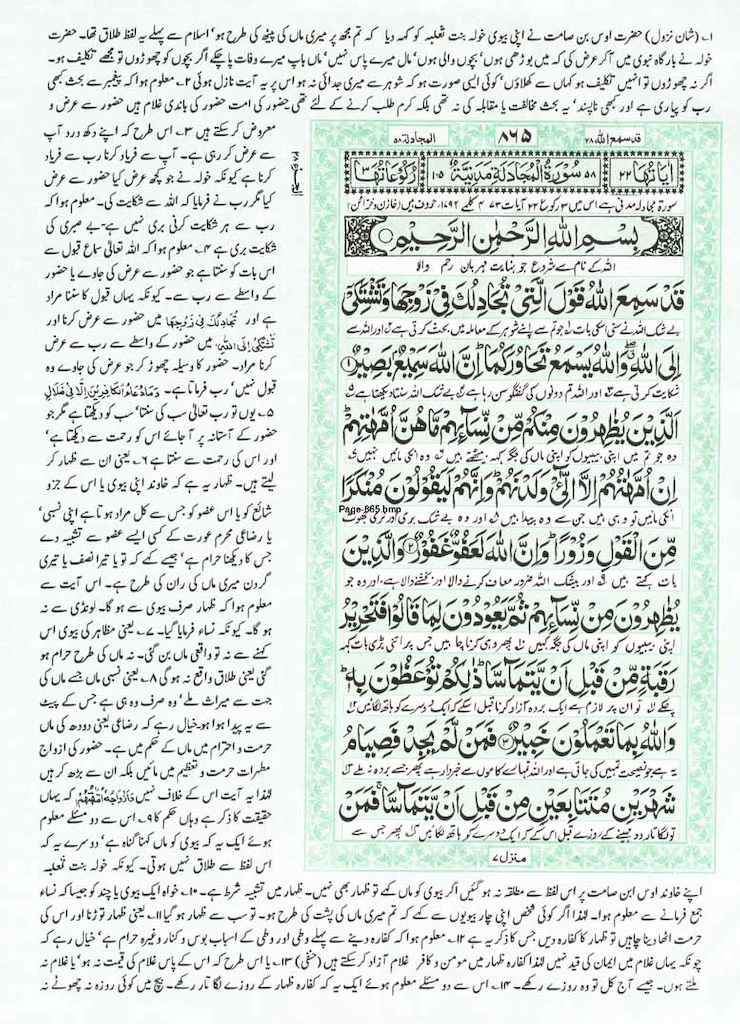 ۱۔ (شان نزول) حضرت اوس بن صامت نے اپنی بیوی خولہ بنت ثعلبہ کو کہہ دیا کہ تم مجھ پر میری ماں کی پیٹھ کی طرح ہو' اسلام سے پہلے یہ لفظ طلاق تھا۔ حضرت
خولہ نے بارگاہ نبوی میں آ کر عرض کی کہ میں بوڑھی ہوں' بچوں والی ہوں' مال میرے پاس نہیں' ماں باپ میرے وفات پا چکے اگر بچوں کو چھوڑوں تو مجھے تکلیف ہو۔
اگر نہ چھوڑوں تو انہیں تکلیف ہو کہاں سے کھلاؤں' کوئی ایسی صورت ہو کہ شوہر سے میری جدائی نہ ہو اس پر یہ آیت نازل ہوئی ۲۔ معلوم ہوا کہ پیغمبر سے بحث کبھی
رب کو پیاری ہے اور کبھی ناپسند' یہ بحث مخالفت یا مقابلہ کی نہ تھی بلکہ کرم طلب کرنے کے لئے تھی حضور کی امت حضور کی باندی غلام ہیں حضور سے عرض و
معروض کر سکتے ہیں ۳۔ اس طرح کہ اپنے دکھ درد آپ
سے عرض کر رہی ہے۔ آپ سے فریاد کرنا رب سے فریاد
کرنا ہے کیونکہ خولہ نے جو کچھ عرض کیا حضور سے عرض
کیا مگر رب نے فرمایا کہ اللہ سے شکایت کی۔ معلوم ہوا کہ
رب سے ہر شکایت کرنی بری نہیں ہے۔ بے صبری کی
شکایت بری ہے ۴۔ معلوم ہوا کہ اللہ تعالیٰ سماع قبول سے
اس بات کو سنتا ہے جو حضور سے عرض کی جاوے یا حضور
کے واسطے سے رب سے۔ کیونکہ یہاں قبول کا سننا مراد
ہے اور تُجَادِلُكَ فِي زَوْجِهَا میں حضور سے عرض کرنا اور
تَشْتَكِي إِلَى اللهِ میں حضور کے واسطے سے رب سے عرض
کرنا مراد۔ حضور کا وسیلہ چھوڑ کر جو عرض کی جاوے وہ
قبول نہیں' رب فرماتا ہے۔ وَمَا دُعَاءُ الْكَافِرِينَ إِلَّا فِي ضَلَالٍ
۵۔ یوں تو رب تعالیٰ سب کی سنتا' سب کو دیکھتا ہے مگر جو
حضور کے آستانہ پر آ جائے اس کو رحمت سے دیکھتا ہے'
اور اس کی رحمت سے سنتا ہے ۶۔ یعنی ان سے ظہار کر
لیتے ہیں۔ ظہار یہ ہے کہ خاوند اپنی بیوی یا اس کے جزو
شائع کو یا اس عضو کو جس سے کل مراد ہوتا ہے اپنی نسبی'
یا رضاعی محرم عورت کے کسی ایسے عضو سے تشبیہ دے
جس کا دیکھنا حرام ہے' جیسے کہے کہ تو یا تیرا نصف یا تیری
گردن میری ماں کی ران کی طرح ہے۔ اس آیت سے
معلوم ہوا کہ ظہار صرف بیوی سے ہو گا۔ لونڈی سے نہ
ہو گا۔ کیونکہ نساء فرمایا گیا۔ ۷۔ یعنی مظاہر کی بیوی اس
کہنے سے نہ تو واقعی ماں بن گئی۔ نہ ماں کی طرح حرام ہو
گئی یعنی طلاق واقع نہ ہو گی ۸۔ یعنی نسبی ماں جسے ماں کی
جہت سے میراث ملے' وہ صرف وہ ہی ہے جس کے پیٹ
سے یہ پیدا ہوا ہو۔ خیال رہے کہ رضاعی یعنی دودھ کی ماں
حرمت و احترام میں ماں کے حکم میں ہے۔ حضور کی ازواج
مطہرات حرمت و تعظیم میں مائیں بلکہ ان سے بڑھ کر ہیں
لہذا یہ آیت اس کے خلاف نہیں وَأَزْوَاجُهُ أُمَّهَاتُهُمْ کہ یہاں
حقیقت کا ذکر ہے وہاں حکم کا ۹۔ اس سے دو مسئلے معلوم
ہوئے ایک یہ کہ بیوی کو ماں کہنا گناہ ہے' دوسرے یہ کہ
اس لفظ سے طلاق نہیں ہوتی۔ کیونکہ خولہ بنت ثعلبہ
قد سمع اللہ ۲۸
۸۶۵
المجادلۃ ۵۸
اٰیَاتُهَا ۲۲
۵۸ سُوْرَةُ الْمُجَادَلَةِ مَدَنِيَّةٌ ۱۰۵
رُكُوْعَاتُهَا ۳
سورۃ مجادلہ مدنی ہے اس میں ۳ رکوع ۲۲ آیات ۴۷۳ کلمے ۱۷۹۲ حروف ہیں (خازن و خزائن)
بِسْمِ اللهِ الرَّحْمٰنِ الرَّحِيْمِ
اللہ کے نام سے شروع جو نہایت مہربان رحم والا
قَدْ سَمِعَ اللهُ قَوْلَ الَّتِيْ تُجَادِلُكَ فِيْ زَوْجِهَا وَتَشْتَكِيْٓ
بے شک اللہ نے سنی اسکی بات جو تم سے اپنے شوہر کے معاملہ میں بحث کرتی ہے اور اللہ سے
اِلَى اللهِ وَاللهُ يَسْمَعُ تَحَاوُرَكُمَا اِنَّ اللهَ سَمِيْعٌۢ بَصِيْرٌ ۱
شکایت کرتی ہے اور اللہ تم دونوں کی گفتگو سن رہا ہے بے شک اللہ سنتا دیکھتا ہے
اَلَّذِيْنَ يُظٰهِرُوْنَ مِنْكُمْ مِّنْ نِّسَآئِهِمْ مَّا هُنَّ اُمَّهٰتِهِمْ
وہ جو تم میں اپنی بیبیوں کو اپنی ماں کی جگہ کہہ بیٹھتے ہیں وہ انکی مائیں نہیں
اِنْ اُمَّهٰتُهُمْ اِلَّا الّٰٓـِٔيْ وَلَدْنَهُمْ وَاِنَّهُمْ لَيَقُوْلُوْنَ مُنْكَرًا
Page-865.bmp
انکی مائیں تو وہی ہیں جن سے وہ پیدا ہیں اور وہ بے شک بری اور نری جھوٹ
مِّنَ الْقَوْلِ وَزُوْرًا وَاِنَّ اللهَ لَعَفُوٌّ غَفُوْرٌ ۲ وَالَّذِيْنَ
بات کہتے ہیں اور بیشک اللہ ضرور معاف کرنے والا اور بخشنے والا ہے۔ اور وہ جو
يُظٰهِرُوْنَ مِنْ نِّسَآئِهِمْ ثُمَّ يَعُوْدُوْنَ لِمَا قَالُوْا فَتَحْرِيْرُ
اپنی بیبیوں کو اپنی ماں کی جگہ کہیں پھر وہی کرنا چاہیں جس پر اتنی بڑی بات کہہ
رَقَبَةٍ مِّنْ قَبْلِ اَنْ يَّتَمَآسَّا ذٰلِكُمْ تُوْعَظُوْنَ بِهٖ
چکے تو ان پر لازم ہے ایک بردہ آزاد کرنا قبل اسکے کہ ایک دوسرے کو ہاتھ لگائیں
وَاللهُ بِمَا تَعْمَلُوْنَ خَبِيْرٌ ۳ فَمَنْ لَّمْ يَجِدْ فَصِيَامُ
یہ ہے جو نصیحت تمہیں کی جاتی ہے اور اللہ تمہارے کاموں سے خبردار ہے پھر جسے بردہ نہ ملے
شَهْرَيْنِ مُتَتَابِعَيْنِ مِنْ قَبْلِ اَنْ يَّتَمَآسَّا فَمَنْ
تو لگاتار دو مہینے کے روزے قبل اس کے کہ ایک دوسرے کو ہاتھ لگائیں پھر جس سے
منزل ۷
اپنے خاوند اوس ابن صامت پر اس لفظ سے مطلقہ نہ ہو گئیں اگر بیوی کو ماں کہے تو ظہار بھی نہیں۔ ظہار میں تشبیہ شرط ہے۔ ۱۰۔ خواہ ایک بیوی یا چند کو جیسا کہ نساء
جمع فرمانے سے معلوم ہوا۔ لہذا اگر کوئی شخص اپنی چار بیویوں سے کہے کہ تم میری ماں کی پشت کی طرح ہو۔ تو سب سے ظہار ہو گیا ۱۱۔ یعنی ظہار توڑنا اور اس کی
حرمت اٹھا دینا چاہیں تو ظہار کا کفارہ دیں جس کا ذکر یہ ہے ۱۲۔ معلوم ہوا کہ کفارہ دینے سے پہلے وطی اور وطی کے اسباب بوس و کنار وغیرہ حرام ہے' خیال رہے کہ
چونکہ یہاں غلام میں ایمان کی قید نہیں لہذا کفارہ ظہار میں مومن و کافر غلام آزاد کر سکتے ہیں (حنفی) ۱۳۔ یا اس طرح کہ اس کے پاس غلام کی قیمت نہ ہو' یا غلام نہ
ملتے ہوں۔ جیسے آج کل تو وہ روزے رکھے۔ ۱۴۔ اس سے دو مسئلے معلوم ہوئے ایک یہ کہ کفارہ ظہار کے روزے لگا تار رکھے۔ بیچ میں کوئی روزہ نہ چھوٹے نہ